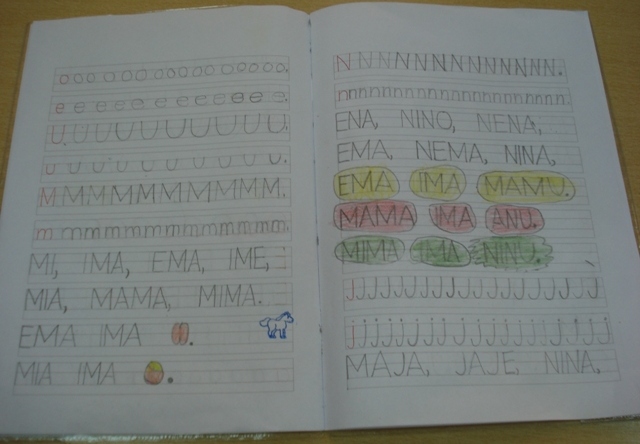 o o o o o o o o o o o o o o o o o.
e e e e e e e e e e e e
U U U U U U U U U U.
u u u u u u u u u u u.
M M M M M M M M M M.
m m m m m m m m m m m m.
MI, IMA, EMA, IME,
MIA, MAMA, MIMA.
EMA IMA .
MIA IMA .
N N N N N N N N N N N N N N.
n n n n n n n n n n n n n n n n n n n n.
ENA, NINO, NENA,
EMA, NEMA, NINA,
EMA IMA MAMU.
MAMA IMA ANU.
MIMA IMA NINU.
J J J J J J J J J J J J J J J
j j j j j j j j j j j j j j j
MAJA, JAJE, NINA,